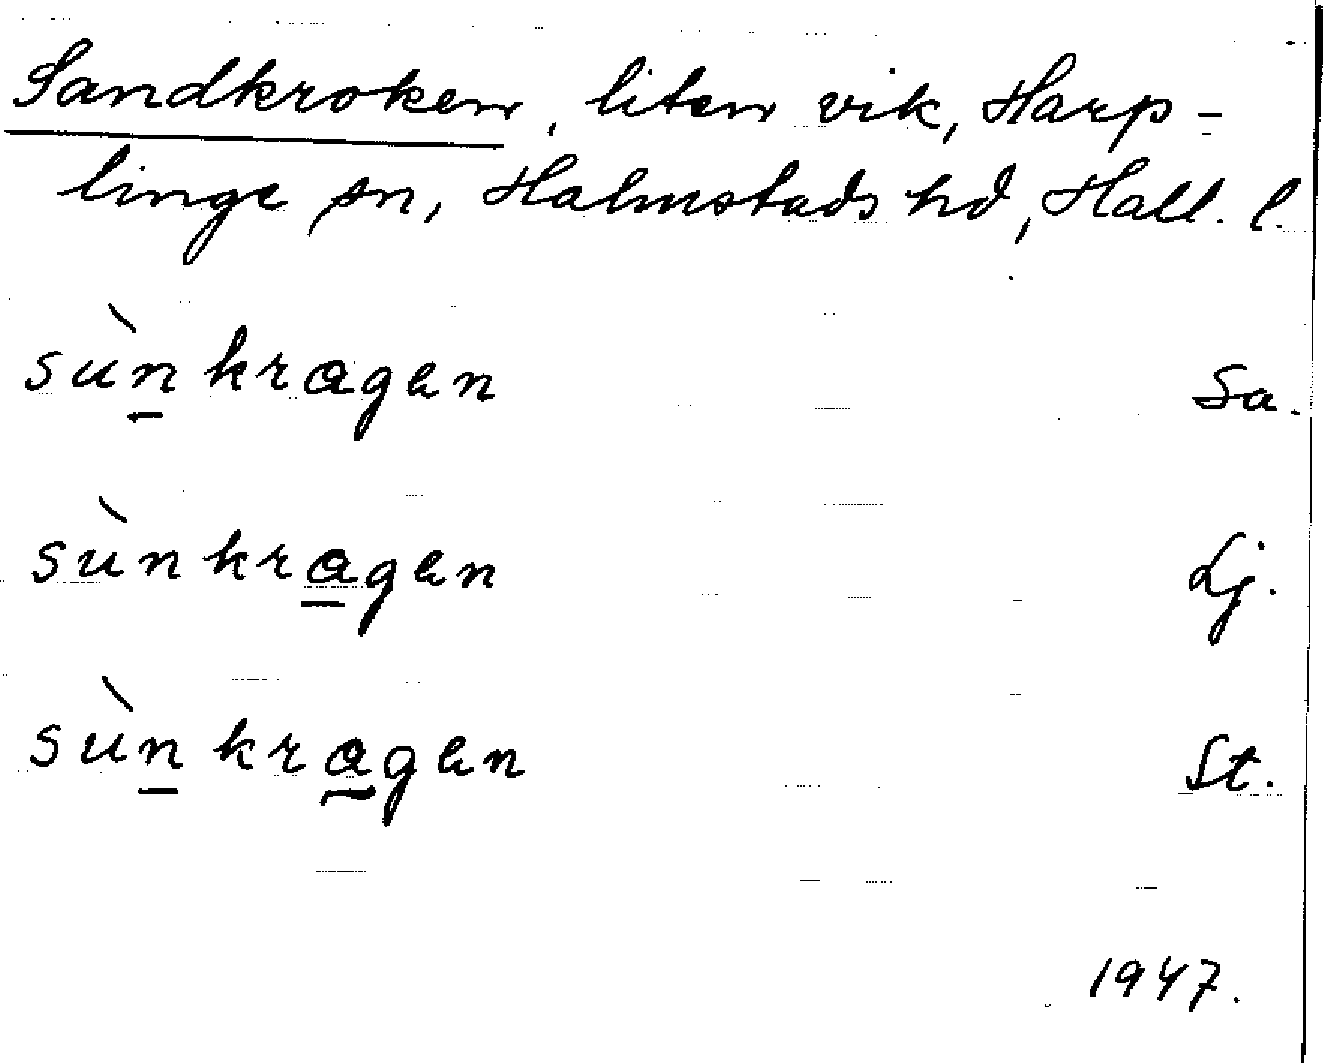 Sandkroken, liten vik, Harp-
linge sn, Halmstads hd, Hall. l.
sùnkragen Sa.
sùnkragen Lj.
sùnkragen St.
1947.